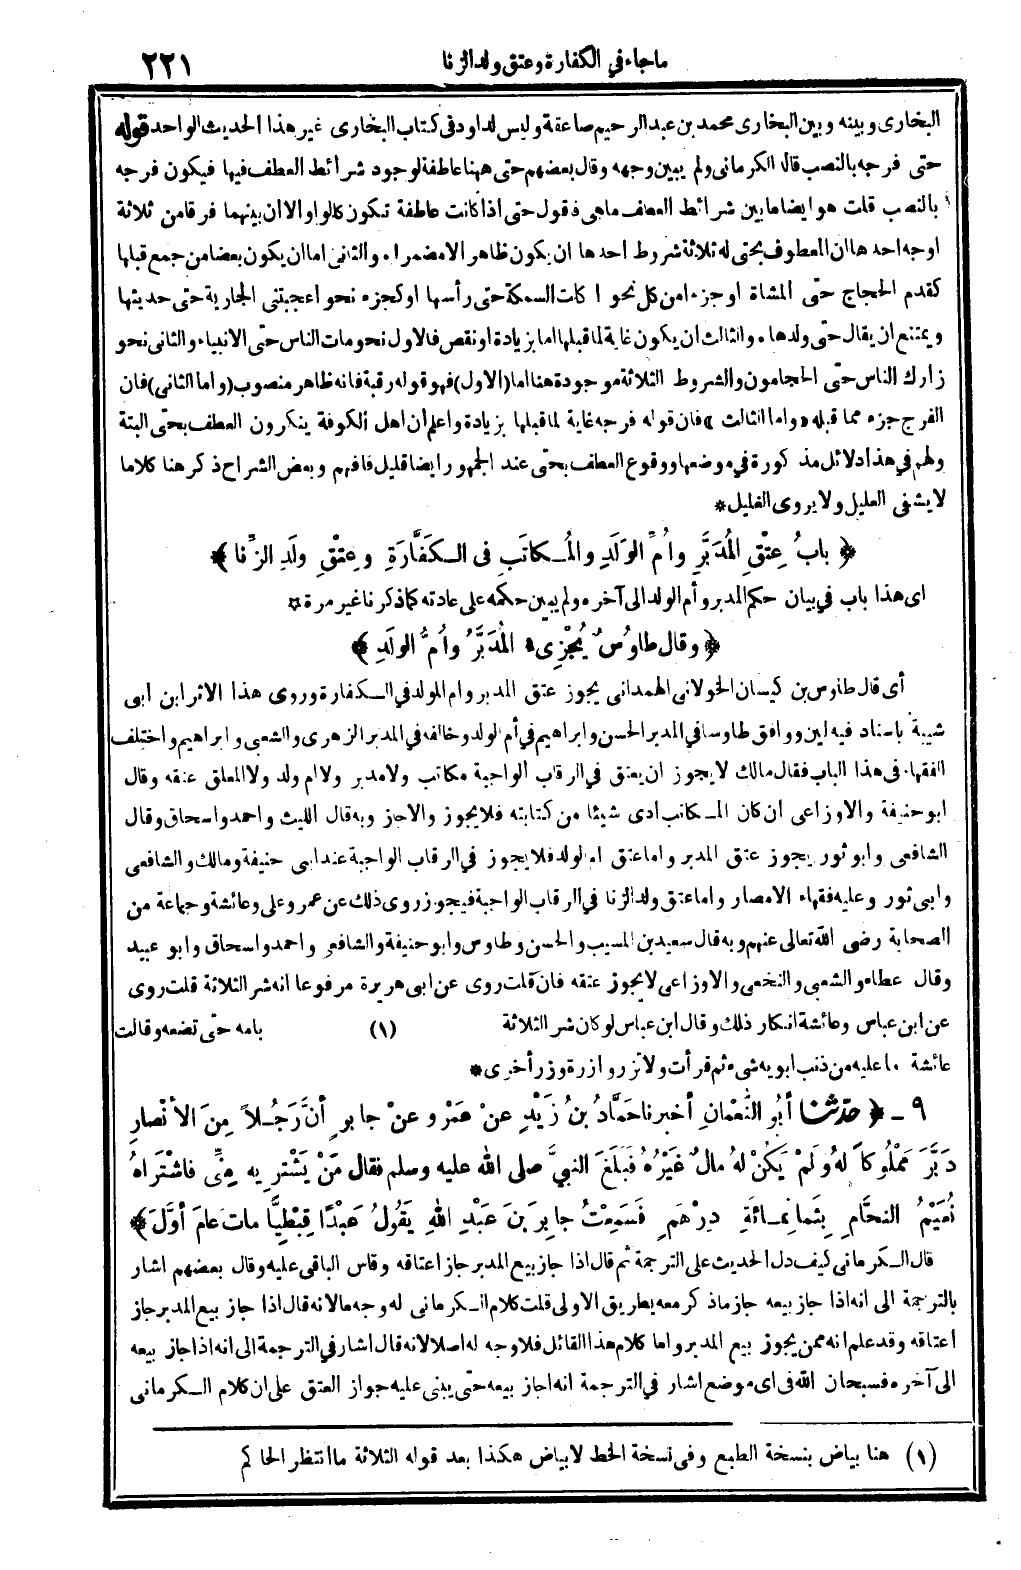 ماجاء في الكفارة وعتق ولد الزنا ٢٢١
البخارى وبينه وبين البخارى محمد بن عبد الرحيم صاعقة وليس لداود فى كتاب البخارى غير هذا الحديث الواحد قوله
حتى فرجه بالنصب قاله الكرمانى ولم يبين وجهه وقال بعضهم حتى ههنا عاطفة لوجود شرائط العطف فيها فيكون فرجه
بالنصب قلت هو ايضا ما بين شرائط العطف ماهى فنقول حتى اذا كانت عاطفة تكون كالواو الا ان بينهما فرقا من ثلاثة
اوجه احدها ان المعطوف بحتى له ثلاثة شروط احدها ان يكون ظاهر الامضمرا . والثانى اما ان يكون بعضا من جمع قبلها
كقدم الحجاج حتى المشاة او جزء امن كل نحو اكلت السمكة حتى رأسها او كجزء نحو اعجبتنى الجارية حتى حديثها
ويمتنع ان يقال حتى ولدها . والثالث ان يكون غاية لما قبلها اما بزيادة او نقص فالاول نحو مات الناس حتى الانبياء والثانى نحو
زارك الناس حتى الحجامون والشروط الثلاثة موجودة هنا اما (الاول) فهو قوله رقبة فانه ظاهر منصوب (واما الثانى) فان
الفرج جزء مما قبله «واما الثالث» فان قوله فرجه غاية لما قبلها بزيادة واعلم ان اهل الكوفة ينكرون العطف بحتى البتة
ولهم فى هذا دلائل مذكورة فى موضعها ووقوع العطف بحتى عند الجمهور ايضا قليل فافهم وبعض الشراح ذكر هنا كلاما
لا يشفى العليل ولا يروى الغليل *
﴿ بابُ عِتْقِ المُدَبَّرِ وأُمِّ الوَلَدِ والمُكاتَبِ فى الكَفَّارَةِ وعِتْقِ ولَدِ الزِّنا ﴾
اى هذا باب فى بيان حكم المدبر وأم الولد الى آخره ولم يبين حكمه على عادته كما ذكرنا غير مرة *
﴿ وقال طاوُسٌ يُجْزِىءُ المُدَبَّرُ وأُمُّ الوَلَدِ ﴾
أى قال طاوس بن كيسان الخولانى الهمدانى يجوز عتق المدبر وام الولد فى الكفارة وروى هذا الاثر ابن ابى
شيبة باسناد فيه لين ووافق طاوسا فى المدبر الحسن وابراهيم فى أم الولد وخالفه فى المدبر الزهرى والشعبى وابراهيم واختلف
الفقهاء فى هذا الباب فقال مالك لا يجوز ان يعتق فى الرقاب الواجبة مكاتب ولا مدبر ولا ام ولد ولا المعلق عتقه وقال
ابو حنيفة والاوزاعى ان كان المكاتب ادى شيئا من كتابته فلا يجوز والا جاز وبه قال الليث واحمد واسحاق وقال
الشافعى وابو ثور يجوز عتق المدبر واما عتق ام الولد فلا يجوز فى الرقاب الواجبة عند ابى حنيفة ومالك والشافعى
وابى ثور وعليه فقهاء الامصار واما عتق ولد الزنا فى الرقاب الواجبة فيجوز روى ذلك عن عمر وعلى وعائشة وجماعة من
الصحابة رضى الله تعالى عنهم وبه قال سعيد بن المسيب والحسن وطاوس وابو حنيفة والشافعى واحمد واسحاق وابو عبيد
وقال عطاء والشعبى والنخعى والاوزاعى لا يجوز عتقه فان قلت روى عن ابى هريرة مرفوعا انه شر الثلاثة قلت روى
عن ابن عباس وعائشة انكار ذلك وقال ابن عباس لو كان شر الثلاثة (١) بامه حتى تضعه وقالت
عائشة ماعليه من ذنب ابويه شىء ثم قرأت ولا تزر وازرة وزر أخرى *
٩ - ﴿ حدّثنا أبُو النُّعْمانِ أخبرنا حَمَّادُ بنُ زَيْدٍ عنْ عَمْرٍو عنْ جابرٍ أنَّ رَجُلاً مِنَ الأنْصارِ
دَبَّرَ مَمْلُوكاً لهُ ولَمْ يَكُنْ لهُ مالٌ غَيْرُهُ فَبَلَغَ النبيَّ صلى الله عليه وسلم فقال مَنْ يَشْتَرِيهِ مِنِّى فاشْتَراهُ
نُعَيْمُ النحَّامِ بِثَمانِمائَةِ دِرْهَمٍ فَسَمِعْتُ جابِرَ بنَ عَبْدِ اللهِ يَقُولُ عَبْدًا قِبْطِيًّا ماتَ عامَ أوَّلَ ﴾
قال الكرمانى كيف دل الحديث على الترجمة ثم قال اذا جاز بيع المدبر جاز اعتاقه وقاس الباقى عليه وقال بعضهم اشار
بالترجمة الى انه اذا جاز بيعه جاز ماذكر معه بطريق الاولى قلت كلام الكرمانى له وجه ما لانه قال اذا جاز بيع المدبر جاز
اعتاقه وقد علم انه ممن يجوز بيع المدبر واما كلام هذا القائل فلا وجه له اصلا لانه قال اشار فى الترجمة الى انه اذا جاز بيعه
الى آخره فسبحان الله فى اى موضع اشار فى الترجمة انه اجاز بيعه حتى يبنى عليه جواز العتق على ان كلام الكرمانى
(١) هنا بياض بنسخة الطبع وفى نسخة الخط لا بياض هكذا بعد قوله الثلاثة ما انتظر الحاكم